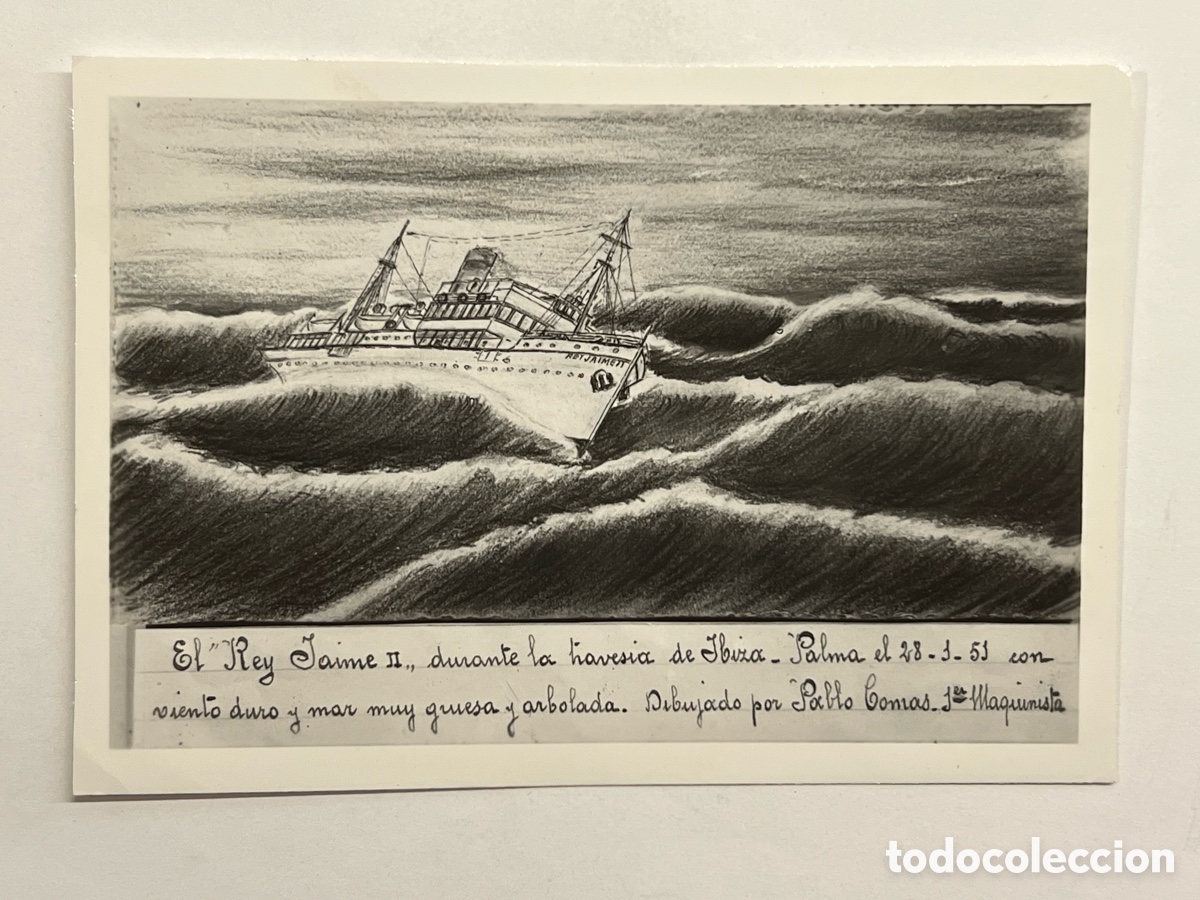 REY JAIME II
El "Rey Jaime II„ durante la travesia de Ibiza - Palma el 28-1-51 con
viento duro y mar muy gruesa y arbolada. Dibujado por Pablo Comas - 1er Maquinista
todocoleccion